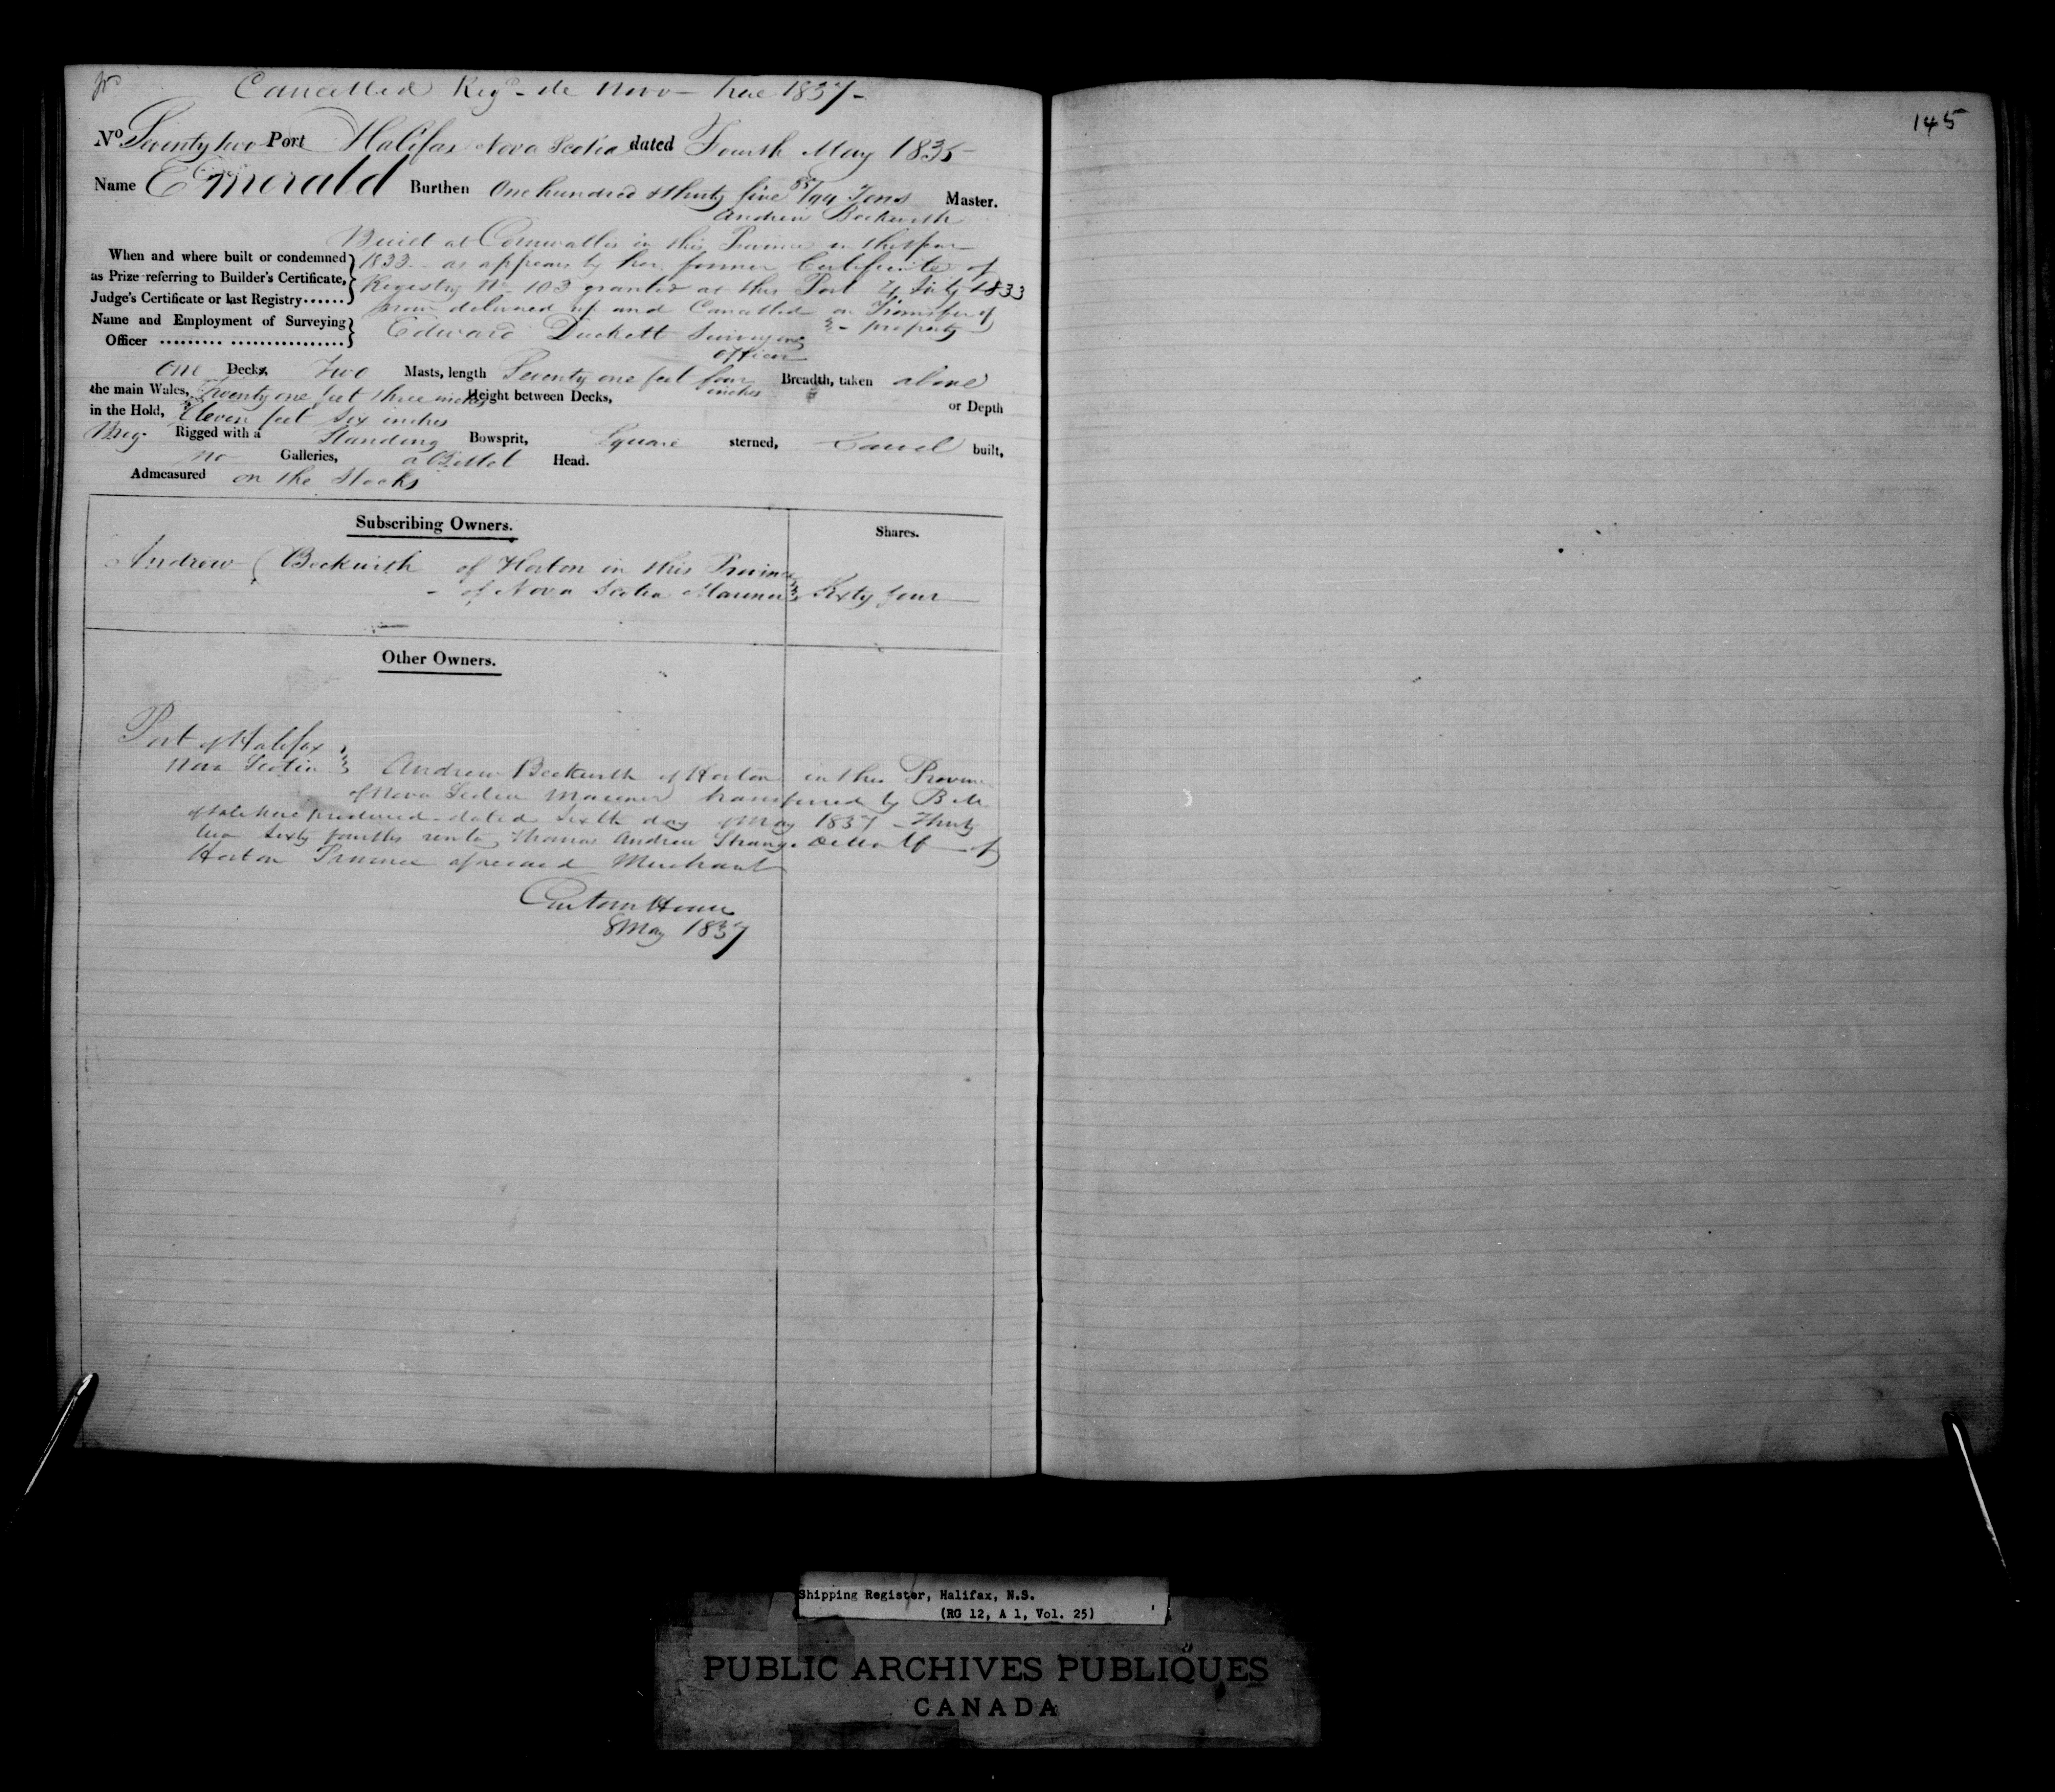 Cancelled Regd - de Novo - here 1837 -
145
No Seventy two Port Halifax Nova Scotia dated Fourth May 1835
Name Emerald Burthen One hundred & thirty five 85/94 Tons Master.
Andrew Beckwith
Built at Cornwallis in this Province in the year
When and where built or condemned
1833 - as appears by her former Certificate of
as Prize referring to Builder's Certificate,
Registry No 103 granted at this Port 4 July 1833
Judge's Certificate or last Registry......
now delivered up and Cancelled on Transfer of
property
Name and Employment of Surveying
Officer ......... .................
Edward Duckett Surveying
Officer
One Decks, Two Masts, length Seventy one feet four inches Breadth, taken above
the main Wales, Twenty one feet three inches Height between Decks, or Depth
in the Hold, Eleven feet six inches
Brig Rigged with a Standing Bowsprit, Square sterned, Carvel built,
no Galleries, a Billet Head.
Admeasured on the Stocks
Subscribing Owners. Shares.
Andrew Beckwith of Horton in this Province
of Nova Scotia Mariner Sixty four
Other Owners.
Port of Halifax
Nova Scotia Andrew Beckwith of Horton in this Province
of Nova Scotia Mariner transferred by Bill
of Sale here produced dated Sixth day of May 1837 - Thirty
two Sixty fourths unto Thomas Andrew Strange DeWolf of
Horton Province aforesaid Merchant
Custom House
8 May 1837
Shipping Register, Halifax, N.S.
(RG 12, A 1, Vol. 25)
PUBLIC ARCHIVES PUBLIQUES
CANADA